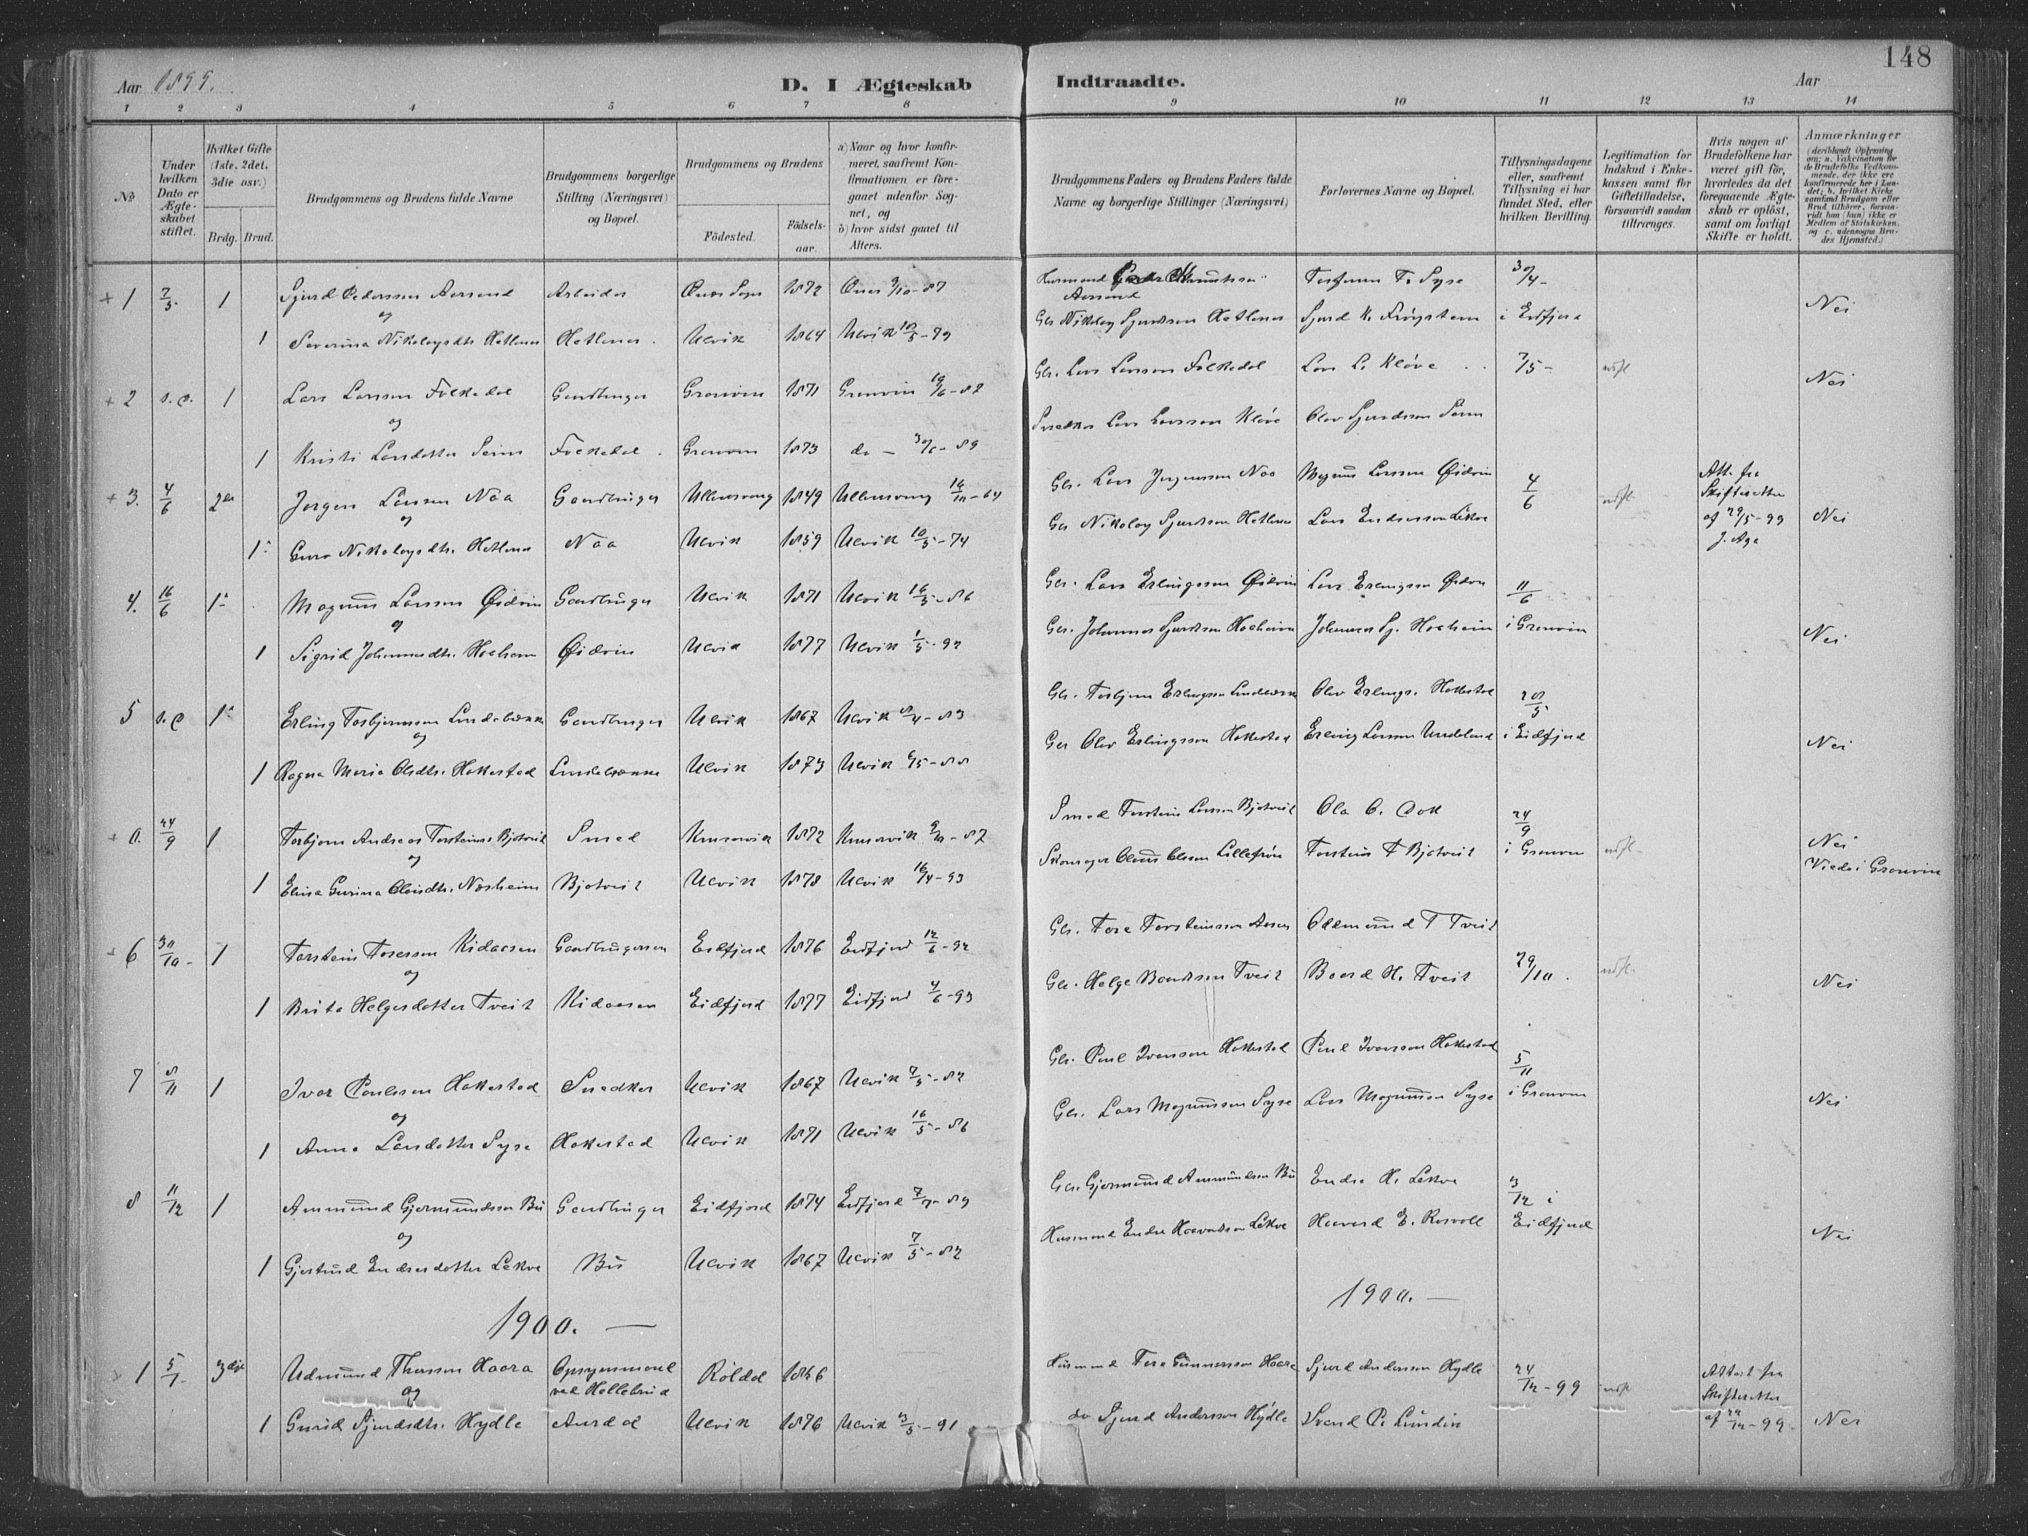 148
Aar 1899.
D. I Ægteskab Indtraadte.
Aar
1 2 3 4 5 6 7 8 9 10 11 12 13 14
No
Under hvilken Dato er Ægteskabet stiftet.
Hvilket Gifte (1ste, 2det, 3die osv.)
Brdg. Brud.
Brudgommens og Brudens fulde Navne
Brudgommens borgerlige Stilling (Næringsvei) og Bopæl.
Brudgommens og Brudens
Födested. Födselsaar.
a) Naar og hvor konfirmeret, saafremt Konfirmationen er foregaaet udenfor Sognet, og
b) hvor sidst gaaet til Alters.
Brudgommens Faders og Brudens Faders fulde Navne og borgerlige Stillinger (Næringsvei)
Forlovernes Navne og Bopæl.
Tillysningsdagene eller, saafremt Tillysning ei har fundet Sted, efter hvilken Bevilling.
Legitimation for Indskud i Enkekassen samt for Giftetilladelse, forsaavidt saadan tiltrænges.
Hvis nogen af Brudefolkene har været gift før, hvorledes da det foregaaende Ægteskab er oplöst, samt om lovligt Skifte er holdt.
Anmærkninger
(deriblandt Oplysning om: a. Vakcination for de Brudefolks Vedkommende, der ikke ere konfirmerede her i Landet; b. hvilket Kirkesamfund Brudgom eller Brud tilhörer, forsaavidt han (hun) ikke er Medlem af Statskirken, og c. udensogns Brudes Hjemsted.)
+ 1 7/5 1 Sjurd Pedersen Aersand Arbeider 1872 87 Husmand Aersand Torbjørn T. Syse 30/4- Nei
og
1 Severina Nikolaysdtr Hetlenes Hetlenes. Ulvik 1864 Ulvik 10/5-79 Gbr Nikolay Sjurdsen Hetlenes Sjurd N. i Eidfjord
+ 2 s.D. 1 Lars Larssen Folkedal Gardbruger Granvin 1871 Granvin Gbr. Lars Larssen Folkedal Lars L. Kløve 7/5- Nei
og
1 Kristi Larsdotter Seim Folkedal. Granvin 1873 do - 89 Snedker Lars Larssen Kløve Olav Sjurdssen Seim
+ 3. 4/6 2den Jørgen Larsen Naa Gardbruger Ullensvang 1849 Ullensvang -64 Gbr. Lars Jørgenssen Naa Magnus Larssen Øidvin 4/6 Att. fra Skifteretten af 29/5-99 J. Aga Nei
og
1 Guro Nikolaysdtr. Hetlenes Naa Ulvik 1859 Ulvik 10/5-74 Gbr Nikolay Sjurdssen Hetlenes Lars Endressen Lekve
4. 16/6 1 Magnus Larssen Øidvin Gardbruger Ulvik 1871 Ulvik 16/5-86 Gbr. Lars Erlingssen Øidvin Lars Erlingssen Øidvin 11/6 i Granvin Nei
og
1 Sigrid Johannesdtr. Hoeheim Øidvin Ulvik 1877 Ulvik 1/5-92 Gbr. Johannes Sjurdssen Hoeheim Johannes Sj. Hoeheim
5 s.D 1 Erling Torbjørnssen Lindebrække Gardbruger Ulvik 1867 Ulvik 8/4-83 Gbr. Torbjørn Erlingssen Lindebrække Olav Erlings. Hakestad 28/5 i Eidfjord Nei
og
1 Ragna Maria Olsdtr. Hakestad Lindebrække Ulvik 1873 Ulvik 6/5-88 Gbr Olav Erlingssen Hakestad Erling Larssen Undeland
+ 24/9 1 Torbjørn Andreas Torsteinss Bjotveit Smed Kinsarvik 1872 Kinsarvik -87 Smed Torstein Larssen Bjotveit Ola O. 24/9 i Granvin Nei
og
1 Elina Gurina Olavsdtr. Næsheim Bjotveit Ulvik 1878 Ulvik 16/4-93 Skomager Olaus Olssen Lillefrøn Torstein T Bjotveit Viede i Granvin
+ 6 1 Torstein Toressen Kidaasen Gardbrugersøn Eidfjord 1876 Eidfjord 12/6-92 Gbr. Tore Torsteinssen Aasen Oddmund T Tveit 29/10. Nei
og
1 Brita Helgesdotter Tveit Kidaasen Eidfjord 1877 Eidfjord 4/6-93 Gbr. Helge Baardssen Tveit Baard H. Tveit
7 8/11 1 Ivar Paulssen Hakestad Snedker Ulvik 1867 Ulvik 7/5-82 Gbr. Paul Ivarssen Hakestad Paul Ivarssen Hakestad 5/11 i Granvin Nei
og
1 Anna Larsdotter Syse Hakestad Ulvik 1871 Ulvik 16/5-86 Gbr. Lars Magnussen Syse Lars Magnussen Syse
8 11/12 1 Ammund Gjermundssen Bu Gardbruger Eidfjord 1874 Eidfjord 89 Gbr. Gjermund Ammundssen Bu Endre H. Lekve 3/12 i Eidfjord Nei
og
1 Gjertrud Endresdotter Lekve Bu Ulvik 1867 Ulvik 7/5-82 Husmand Endre Haavardssen Lekve Haavard E. Rosvoll
1900. — 1900. —
+ 1 5/1 3die Udmund Thorssen Haara Opsynsmand ved Hellebrud Röldal 1856 Husmand Tore Gunnarssen Haara Sjurd Anderssen Hydle 24/12-99 Attest fra Skifteretten af 29/12-99- Nei
og
1 Gurid Sjurdsdtr. Hydle Aurdal Ulvik 1876 Ulvik 3/5-91 do Sjurd Anderssen Hydle Svend P. Lundin